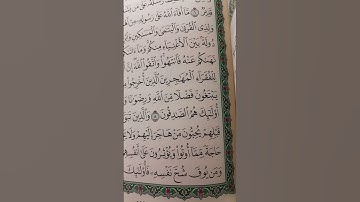 قَدِيرٌ ۝٦ مَّآ أَفَآءَ ٱللَّهُ عَلَىٰ رَسُولِهِۦ
وَلِذِى ٱلْقُرْبَىٰ وَٱلْيَتَٰمَىٰ وَٱلْمَسَٰكِينِ
دُولَةًۢ بَيْنَ ٱلْأَغْنِيَآءِ مِنكُمْ وَمَآ
نَهَىٰكُمْ عَنْهُ فَٱنتَهُوا۟ وَٱتَّقُوا۟ ٱللَّهَ
لِلْفُقَرَآءِ ٱلْمُهَٰجِرِينَ ٱلَّذِينَ أُخْرِجُوا۟
يَبْتَغُونَ فَضْلًا مِّنَ ٱللَّهِ وَرِضْوَٰنًا
أُو۟لَٰٓئِكَ هُمُ ٱلصَّٰدِقُونَ ۝٨ وَٱلَّذِينَ
قَبْلِهِمْ يُحِبُّونَ مَنْ هَاجَرَ إِلَيْهِمْ وَلَا
حَاجَةً مِّمَّآ أُوتُوا۟ وَيُؤْثِرُونَ عَلَىٰٓ
وَمَن يُوقَ شُحَّ نَفْسِهِۦ فَأُو۟لَٰٓئِكَ